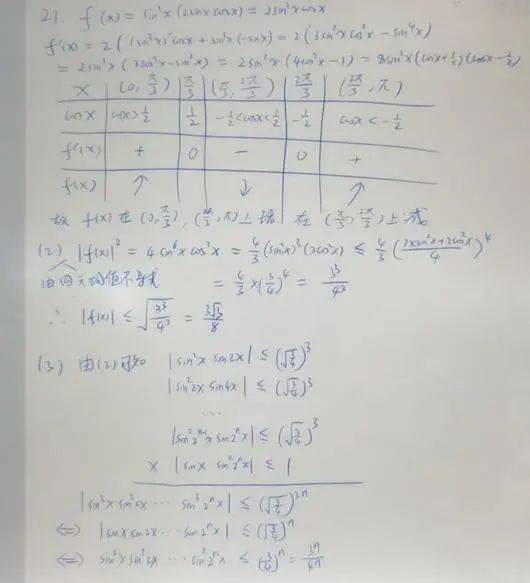 21. f(x) = sin²x(2sinx cosx) = 2sin³x cosx
f'(x) = 2((sin³x)'cosx + sin³x(-sinx)) = 2(3sin²x cos²x - sin⁴x)
= 2sin²x(3cos²x - sin²x) = 2sin²x(4cos²x - 1) = 8sin²x(cosx + 1/2)(cosx - 1/2)
x (0, π/3) π/3 (π/3, 2π/3) 2π/3 (2π/3, π)
cosx cosx > 1/2 1/2 -1/2 < cosx < 1/2 -1/2 cosx < -1/2
f'(x) + 0 - 0 +
f(x) ↑ ↓ ↑
故 f(x) 在 (0, π/3), (2π/3, π) 上增. 在 (π/3, 2π/3) 上减.
(2) |f(x)|² = 4sin⁶x cos²x = 4/3 (sin²x)³(3cos²x) ≤ 4/3 ((3sin²x + 3cos²x)/4)⁴
由四元均值不等式 = 4/3 × (3/4)⁴ = 3³/4³
∴ |f(x)| ≤ √(3³/4³) = 3√3/8
(3) 由(2)可知 |sin²x sin2x| ≤ (√(3/4))³
|sin²2x sin4x| ≤ (√(3/4))³
...
|sin²2ⁿ⁻¹x sin2ⁿx| ≤ (√(3/4))³
× |sinx sin²2ⁿx| ≤ 1
|sin³x sin³2x ... sin³2ⁿx| ≤ (√(3/4))³ⁿ
⇔ |sinx sin2x ... sin2ⁿx| ≤ (√(3/4))ⁿ
⇔ sin²x sin²2x ... sin²2ⁿx ≤ (3/4)ⁿ = 3ⁿ/4ⁿ